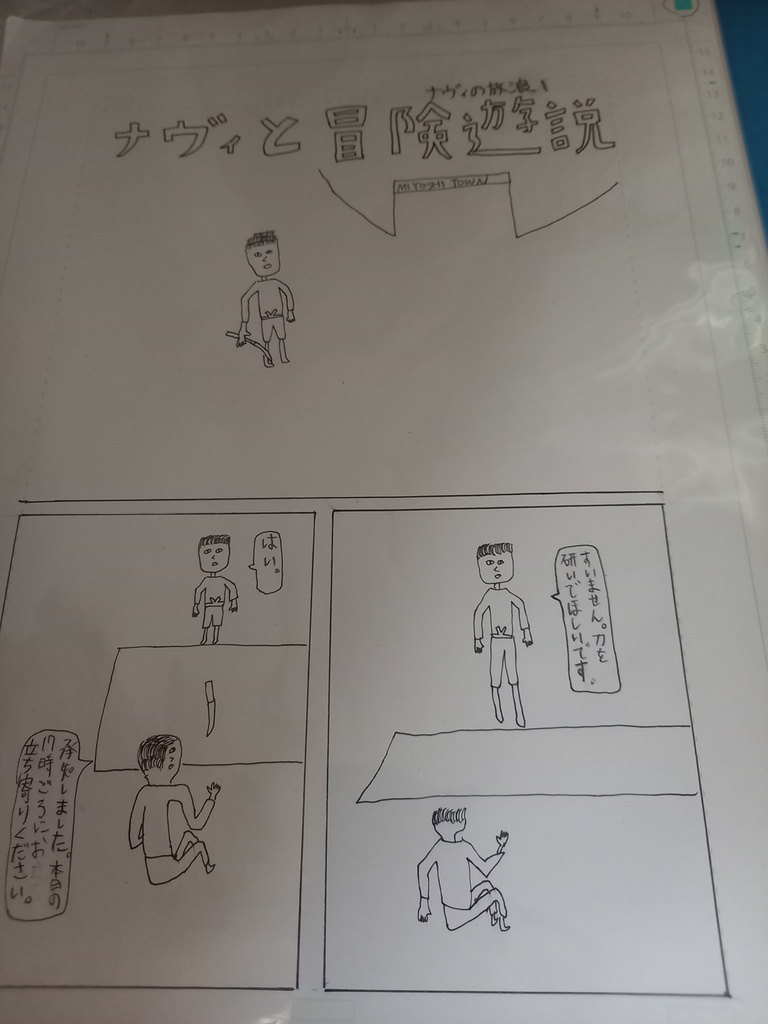 ナヴィの放浪1
ナヴィと冒険遊説
MIYOSHI TOWN
すいません。刀を
研いでほしいです。
はい。
承知しました。本日の
17時ごろにお
立ち寄りください。